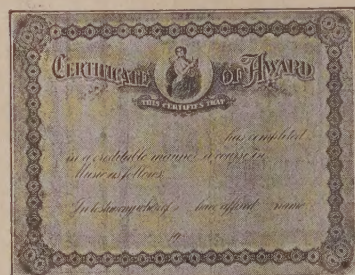 CERTIFICATE OF AWARD
THIS CERTIFIES THAT
has completed
in a creditable manner a course in
Music as follows
In testimony whereof have affixed name
19